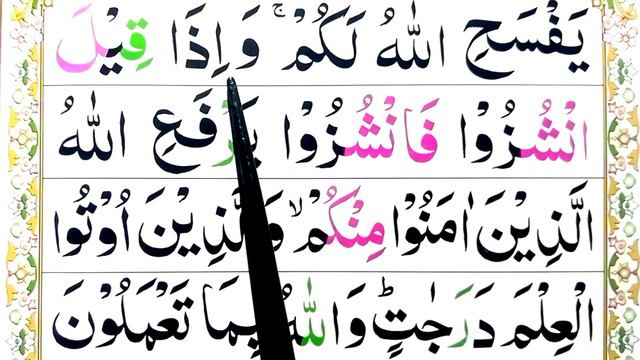 يَفْسَحِ اللّٰهُ لَكُمْ ۚ وَاِذَا قِيْلَ
انْشُزُوْا فَانْشُزُوْا يَرْفَعِ اللّٰهُ
الَّذِيْنَ اٰمَنُوْا مِنْكُمْ ۙ وَالَّذِيْنَ اُوْتُوا
الْعِلْمَ دَرَجٰتٍ ؕ وَاللّٰهُ بِمَا تَعْمَلُوْنَ